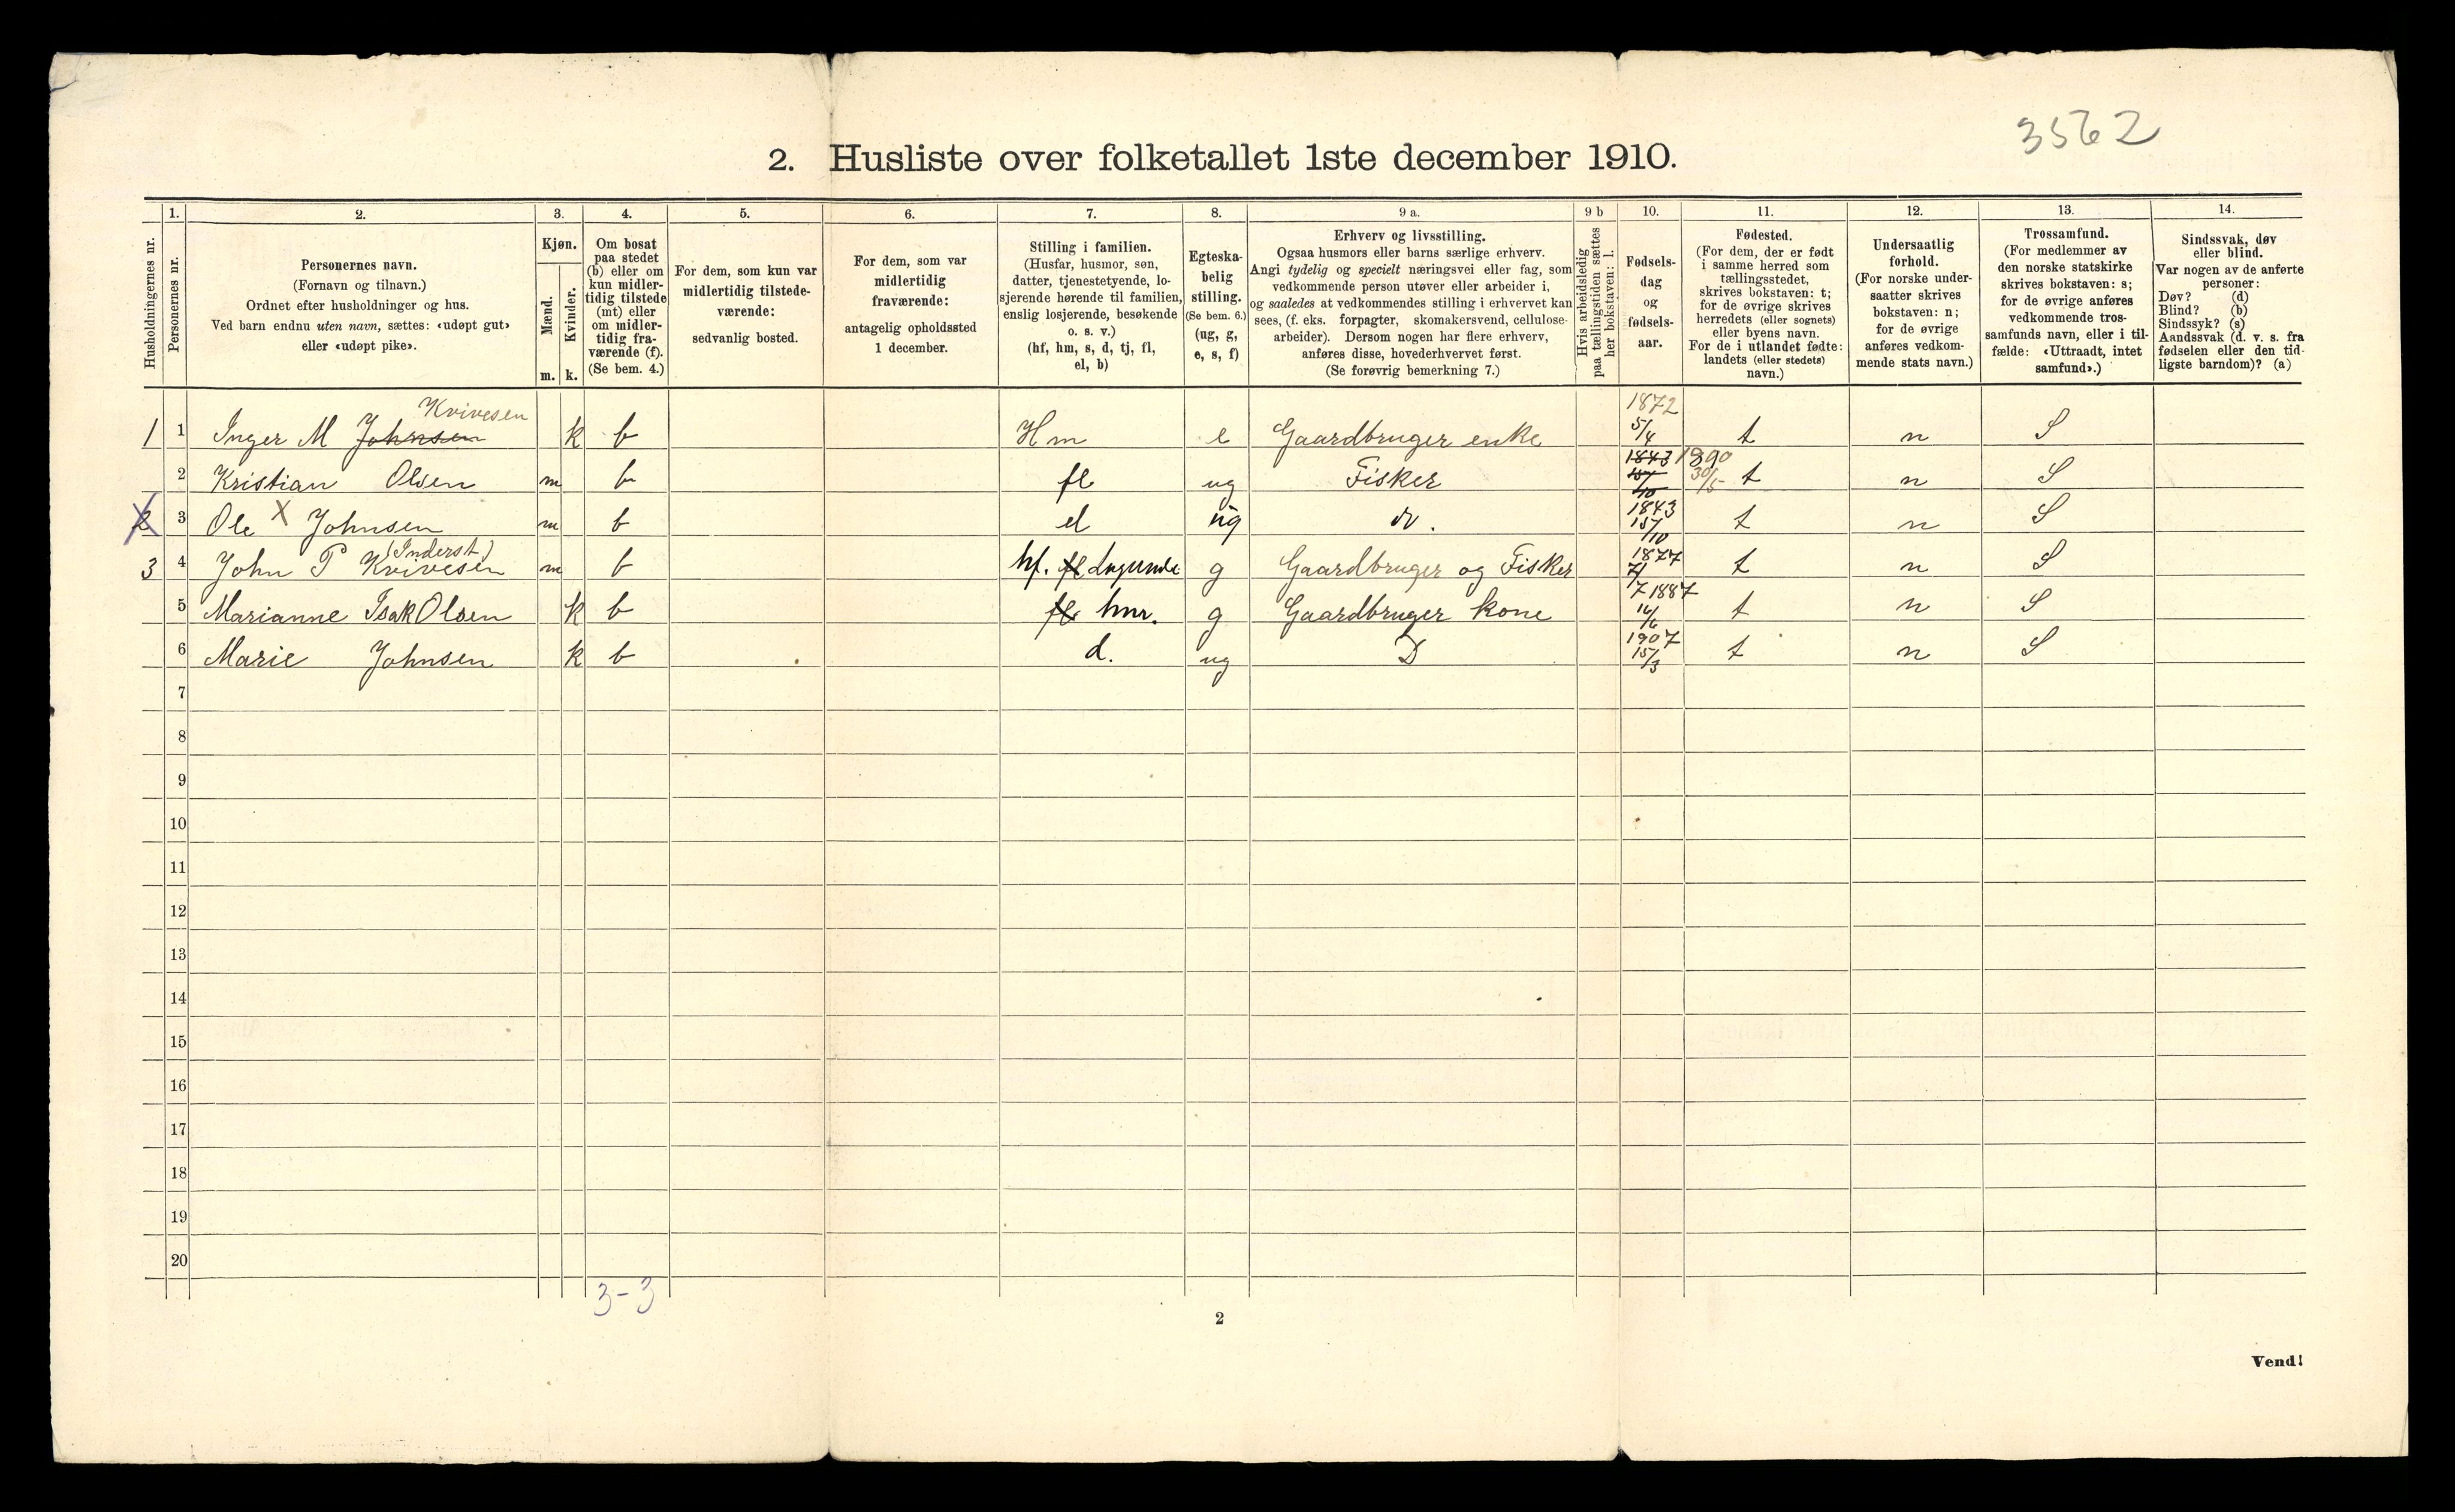 3562
2. Husliste over folketallet 1ste december 1910.
Husholdningernes nr.
1.
Personernes nr.
2.
Personernes navn.
(Fornavn og tilnavn.)
Ordnet efter husholdninger og hus.
Ved barn endnu uten navn, sættes: «udøpt gut»
eller «udøpt pike».
3.
Kjøn.
Mænd.
Kvinder.
m. k.
4.
Om bosat
paa stedet
(b) eller om
kun midler-
tidig tilstede
(mt) eller
om midler-
tidig fra-
værende (f).
(Se bem. 4.)
5.
For dem, som kun var
midlertidig tilstede-
værende:
sedvanlig bosted.
6.
For dem, som var
midlertidig
fraværende:
antagelig opholdssted
1 december.
7.
Stilling i familien.
(Husfar, husmor, søn,
datter, tjenestetyende, lo-
sjerende hørende til familien,
enslig losjerende, besøkende
o. s. v.)
(hf, hm, s, d, tj, fl,
el, b)
8.
Egteska-
belig
stilling.
(Se bem. 6.)
(ug, g,
e, s, f)
9 a.
Erhverv og livsstilling.
Ogsaa husmors eller barns særlige erhverv.
Angi tydelig og specielt næringsvei eller fag, som
vedkommende person utøver eller arbeider i,
og saaledes at vedkommendes stilling i erhvervet kan
sees, (f. eks. forpagter, skomakersvend, cellulose-
arbeider). Dersom nogen har flere erhverv,
anføres disse, hovederhvervet først.
(Se forøvrig bemerkning 7.)
9 b
Hvis arbeidsledig
paa tællingstiden sættes
her bokstaven: l.
10.
Fødsels-
dag
og
fødsels-
aar.
11.
Fødested.
(For dem, der er født
i samme herred som
tællingsstedet,
skrives bokstaven: t;
for de øvrige skrives
herredets (eller sognets)
eller byens navn.
For de i utlandet fødte:
landets (eller stedets)
navn.)
12.
Undersaatlig
forhold.
(For norske under-
saatter skrives
bokstaven: n;
for de øvrige
anføres vedkom-
mende stats navn.)
13.
Trossamfund.
(For medlemmer av
den norske statskirke
skrives bokstaven: s;
for de øvrige anføres
vedkommende tros-
samfunds navn, eller i til-
fælde: «Uttraadt, intet
samfund».)
14.
Sindssvak, døv
eller blind.
Var nogen av de anførte
personer:
Døv? (d)
Blind? (b)
Sindssyk? (s)
Aandssvak (d. v. s. fra
fødselen eller den tid-
ligste barndom)? (a)
Kvivesen 1872
1 1 Inger M Johnsen k b Hm e Gaardbruger enke 5/4 t n S
2 Kristian Olsen m b fl ug Fisker 1843 15/10 1890 30/5 t n S
2 3 Ole X Johnsen m b el ug 1843 15/10 t n S
(Inderst)
3 4 John P Kvivesen m b hf. fl g Gaardbruger og Fisker 1877 t n S
5 Marianne Isak Olsen k b fl hmr. g Gaardbruger kone 1887 16/6 t n S
6 Marie Johnsen k b d. ug D 1907 15/3 t n S
7
8
9
10
11
12
13
14
15
16
17
18
19
20
3-3
2
Vend!